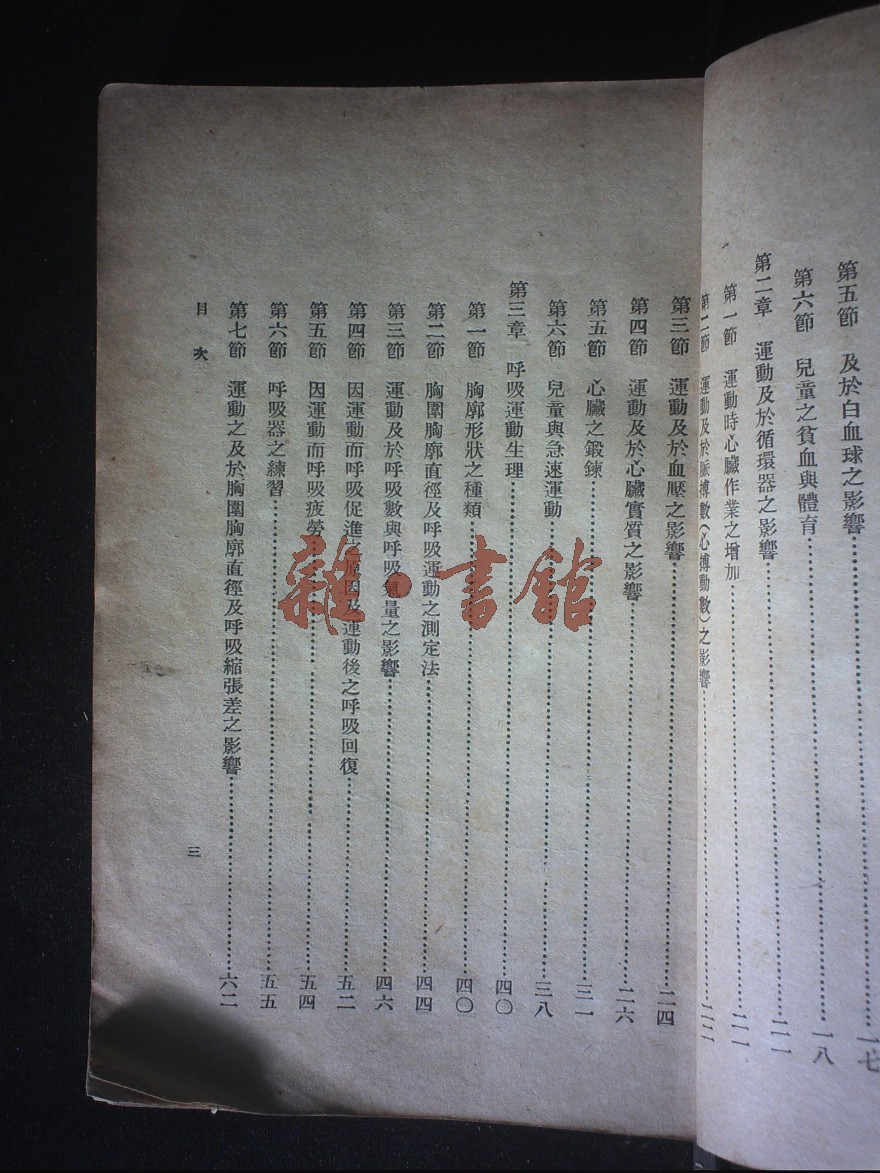 第五節 及於白血球之影響 一七
第六節 兒童之貧血與體育 一八
第二章 運動及於循環器之影響 二一
第一節 運動時心臟作業之增加 二一
第二節 運動及於脈搏數(心搏動數)之影響 二二
第三節 運動及於血壓之影響 二四
第四節 運動及於心臟實質之影響 二六
第五節 心臟之鍛鍊 三一
第六節 兒童與急速運動 三八
第三章 呼吸運動生理 四〇
第一節 胸廓形狀之種類 四〇
第二節 胸圍胸廓直徑及呼吸運動之測定法 四四
第三節 運動及於呼吸數與呼吸氣量之影響 四六
第四節 因運動而呼吸促進之原因及運動後之呼吸回復 五二
第五節 因運動而呼吸疲勞 五四
第六節 呼吸器之練習 五五
第七節 運動之及於胸圍胸廓直徑及呼吸縮張差之影響 六二
目次 三
雜·書館